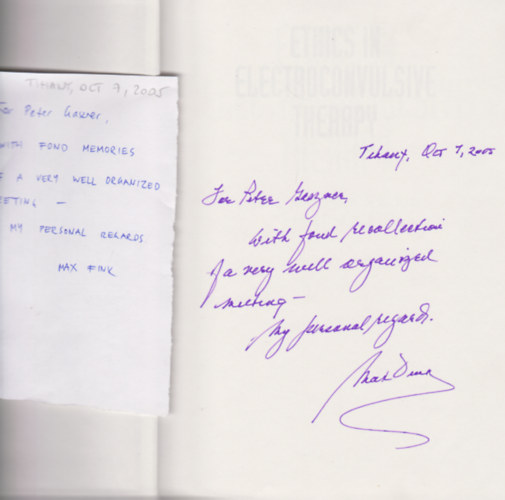 TIHANY, OCT 7, 2005
For Peter
WITH FOND MEMORIES
OF A VERY WELL ORGANIZED
MEETING —
MY PERSONAL REGARDS
MAX FINK
ETHICS IN
ELECTROCONVULSIVE
THERAPY
Tihany, Oct 7, 2005
For Peter Gaszner,
With fond recollection
of a very well organized
meeting —
My personal regards.
Max Fink